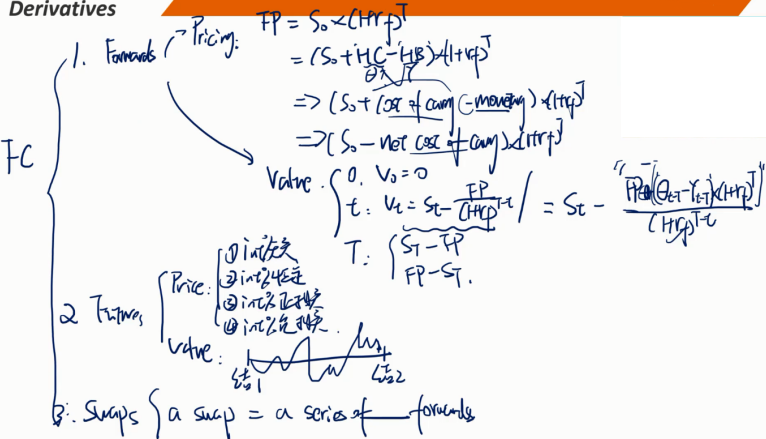 Derivatives
FC
1. Forwards
Pricing: FP = S₀ × (1+rf)^T
= (S₀ + HC - HB) × (1+rf)^T
θ γ
=> (S₀ + cost of carry (-monetary) × (1+rf)^T
=> (S₀ - net cost of carry) × (1+rf)^T
Value
0. V₀ = 0
t: Vt = St - FP/(1+rf)^(T-t) / = St -
(1+rf)^(T-t)
T: ST - FP
FP - ST.
2 Futures
Price:
① int%
② int%恒定
③ int%正相关
④ int%负相关.
Value:
结1
结2
3. Swaps
a swap = a series of forwards